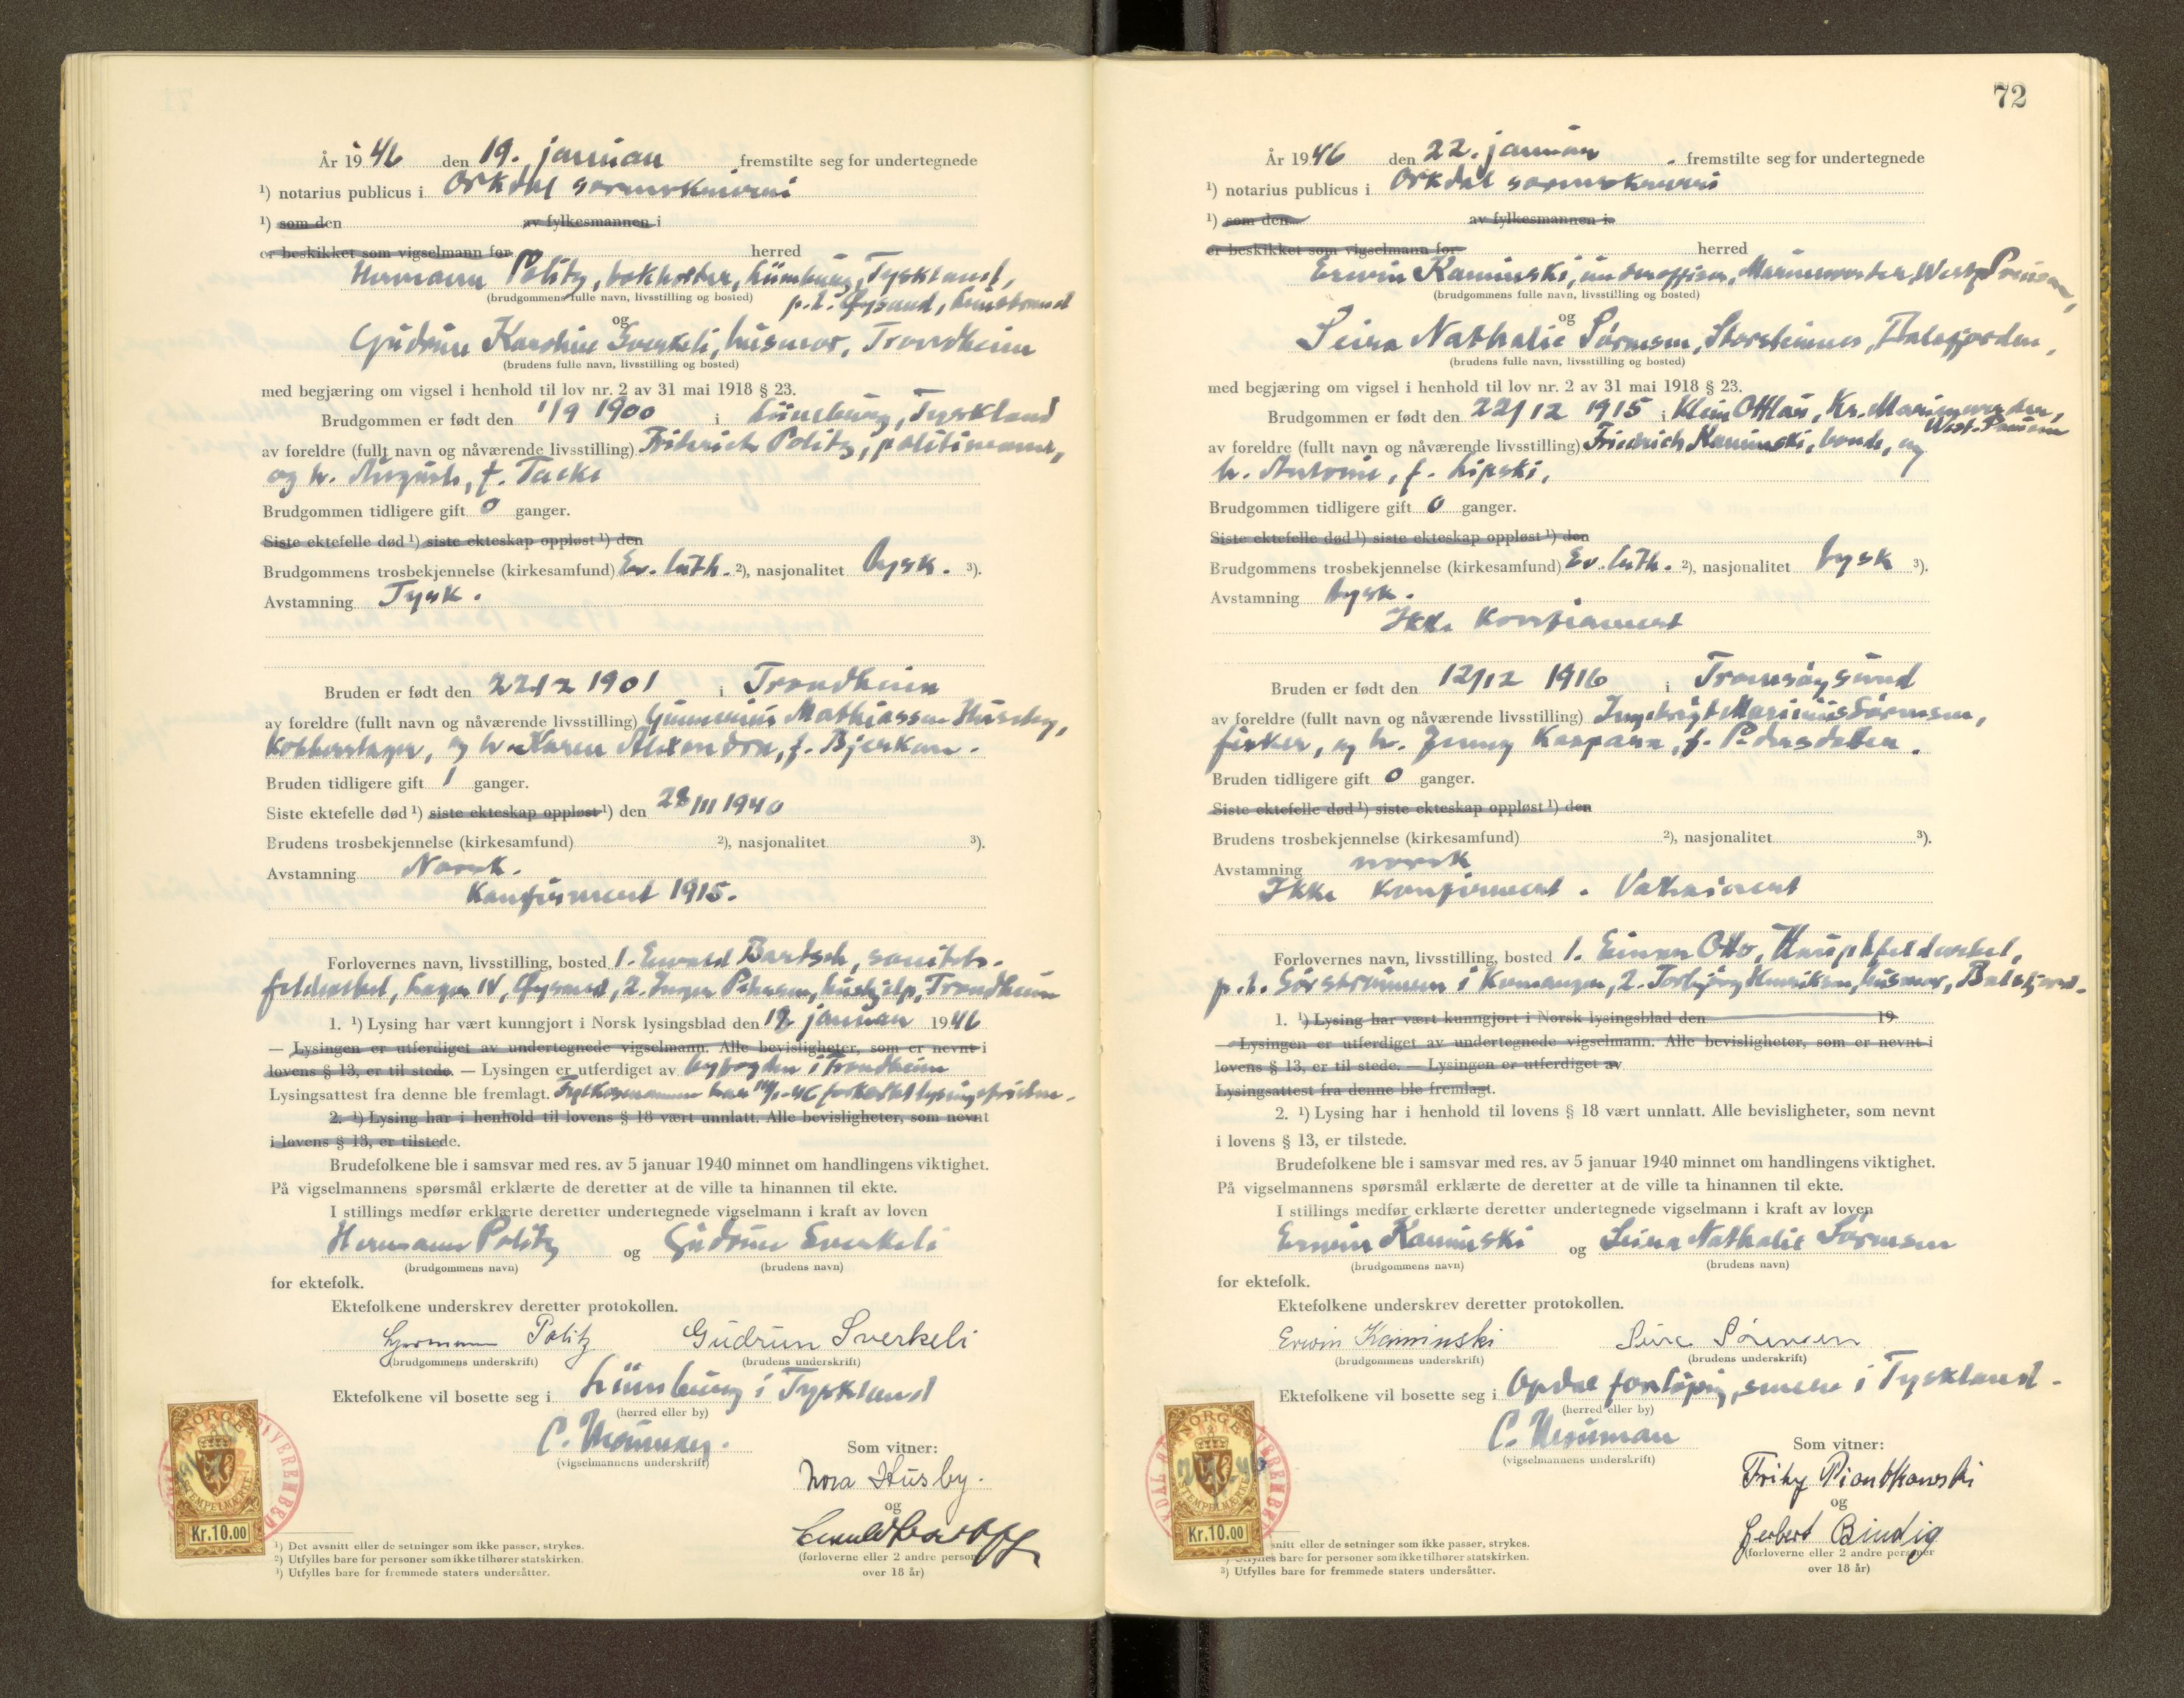 År 1946 den 19. januar fremstilte seg for undertegnede
¹) notarius publicus i Orkdal sorenskriveri
¹) som den av fylkesmannen i
er beskikket som vigselmann for herred
Hermann Politz, bokholder, Lüneburg, Tyskland,
(brudgommens fulle navn, livsstilling og bosted)
p.t. Øysand,
og
Gudrun Karoline Sverkeli, husmor, Trondheim
(brudens fulle navn, livsstilling og bosted)
med begjæring om vigsel i henhold til lov nr. 2 av 31 mai 1918 § 23.
Brudgommen er født den 1/9 1900 i Lüneburg, Tyskland
av foreldre (fullt navn og nåværende livsstilling) Friderich Politz, politimann,
og h. Auguste, f. Tacke
Brudgommen tidligere gift 0 ganger.
Siste ektefelle død ¹) siste ekteskap oppløst ¹) den
Brudgommens trosbekjennelse (kirkesamfund) Ev. luth. ²), nasjonalitet tysk. ³).
Avstamning Tysk.
Bruden er født den 22/2 1901 i Trondheim
av foreldre (fullt navn og nåværende livsstilling) Gunnerius Mathiassen Huseby,
kobberslager, og h. Karen Alexandra, f. Bjerkan.
Bruden tidligere gift 1 ganger.
Siste ektefelle død ¹) siste ekteskap oppløst ¹) den 28/11 1940
Brudens trosbekjennelse (kirkesamfund) ²), nasjonalitet ³).
Avstamning Norsk.
Konfirmert 1915.
Forlovernes navn, livsstilling, bosted 1. Ewald Bartsch, sanitets-
feldwebel, Lager IV, Øysand, 2. Inger Pettersen, hushjelp, Trondheim
1. ¹) Lysing har vært kunngjort i Norsk lysingsblad den 12 januar 1946
— Lysingen er utferdiget av undertegnede vigselmann. Alle bevisligheter, som er nevnt i
lovens § 13, er til stede. — Lysingen er utferdiget av byfogden i Trondheim
Lysingsattest fra denne ble fremlagt. Fylkesmannen har forkortet lysingsfristen.
2. ¹) Lysing har i henhold til lovens § 18 vært unnlatt. Alle bevisligheter, som nevnt
i lovens § 13, er tilstede.
Brudefolkene ble i samsvar med res. av 5 januar 1940 minnet om handlingens viktighet.
På vigselmannens spørsmål erklærte de deretter at de ville ta hinannen til ekte.
I stillings medfør erklærte deretter undertegnede vigselmann i kraft av loven
Hermann Politz og Gudrun Sverkeli
(brudgommens navn) (brudens navn)
for ektefolk.
Ektefolkene underskrev deretter protokollen.
Hermann Politz Gudrun Sverkeli
(brudgommens underskrift) (brudens underskrift)
Ektefolkene vil bosette seg i Lüneburg i Tyskland
(herred eller by)
(vigselmannens underskrift)
Som vitner:
Nora Husby.
og
(forloverne eller 2 andre personer
over 18 år)
NORGE
STEMPELMERKE
Kr.10.00
¹) Det avsnitt eller de setninger som ikke passer, strykes.
²) Utfylles bare for personer som ikke tilhører statskirken.
³) Utfylles bare for fremmede staters undersåtter.
72
År 1946 den 22. januar fremstilte seg for undertegnede
¹) notarius publicus i Orkdal sorenskriveri
¹) som den av fylkesmannen i
er beskikket som vigselmann for herred
Erwin Kaminski, underoffiser, Marienwerder, West-Preussen,
(brudgommens fulle navn, livsstilling og bosted)
og
Seira Nathalie Sørensen, Storsteinnes, Balsfjorden,
(brudens fulle navn, livsstilling og bosted)
med begjæring om vigsel i henhold til lov nr. 2 av 31 mai 1918 § 23.
Brudgommen er født den 22/12 1915 i Klein Ottlau, Kr. Marienwerder,
West-Preussen
av foreldre (fullt navn og nåværende livsstilling) Friedrich Kaminski, bonde, og
h. Antonie, f. Lipski,
Brudgommen tidligere gift 0 ganger.
Siste ektefelle død ¹) siste ekteskap oppløst ¹) den
Brudgommens trosbekjennelse (kirkesamfund) Ev. luth. ²), nasjonalitet tysk ³).
Avstamning tysk.
Ikke konfirmert
Bruden er født den 12/12 1916 i Tromsøysund
av foreldre (fullt navn og nåværende livsstilling) Ingebrigt Marinius Sørensen,
fisker, og h. Jenny Kaspara, f. Pedersdatter.
Bruden tidligere gift 0 ganger.
Siste ektefelle død ¹) siste ekteskap oppløst ¹) den
Brudens trosbekjennelse (kirkesamfund) ²), nasjonalitet ³).
Avstamning norsk
Ikke konfirmert. Vaksinert
Forlovernes navn, livsstilling, bosted 1. Einar Otto, Hauptfeldwebel,
p.t. Sørstraumen i Kvænangen, 2. Torbjørg Henriksen, husmor, Balsfjord.
1. ¹) Lysing har vært kunngjort i Norsk lysingsblad den 19
— Lysingen er utferdiget av undertegnede vigselmann. Alle bevisligheter, som er nevnt i
lovens § 13, er til stede. — Lysingen er utferdiget av
Lysingsattest fra denne ble fremlagt.
2. ¹) Lysing har i henhold til lovens § 18 vært unnlatt. Alle bevisligheter, som nevnt
i lovens § 13, er tilstede.
Brudefolkene ble i samsvar med res. av 5 januar 1940 minnet om handlingens viktighet.
På vigselmannens spørsmål erklærte de deretter at de ville ta hinannen til ekte.
I stillings medfør erklærte deretter undertegnede vigselmann i kraft av loven
Erwin Kaminski og Seira Nathalie Sørensen
(brudgommens navn) (brudens navn)
for ektefolk.
Ektefolkene underskrev deretter protokollen.
Erwin Kaminski Seira Sørensen
(brudgommens underskrift) (brudens underskrift)
Ektefolkene vil bosette seg i Opdal foreløpig, senere i Tyskland.
(herred eller by)
(vigselmannens underskrift)
Som vitner:
Fritz Piontkowski
og
Herbert Bindig
(forloverne eller 2 andre personer
over 18 år)
NORGE
STEMPELMERKE
Kr.10.00
snitt eller de setninger som ikke passer, strykes.
²) Utfylles bare for personer som ikke tilhører statskirken.
³) Utfylles bare for fremmede staters undersåtter.